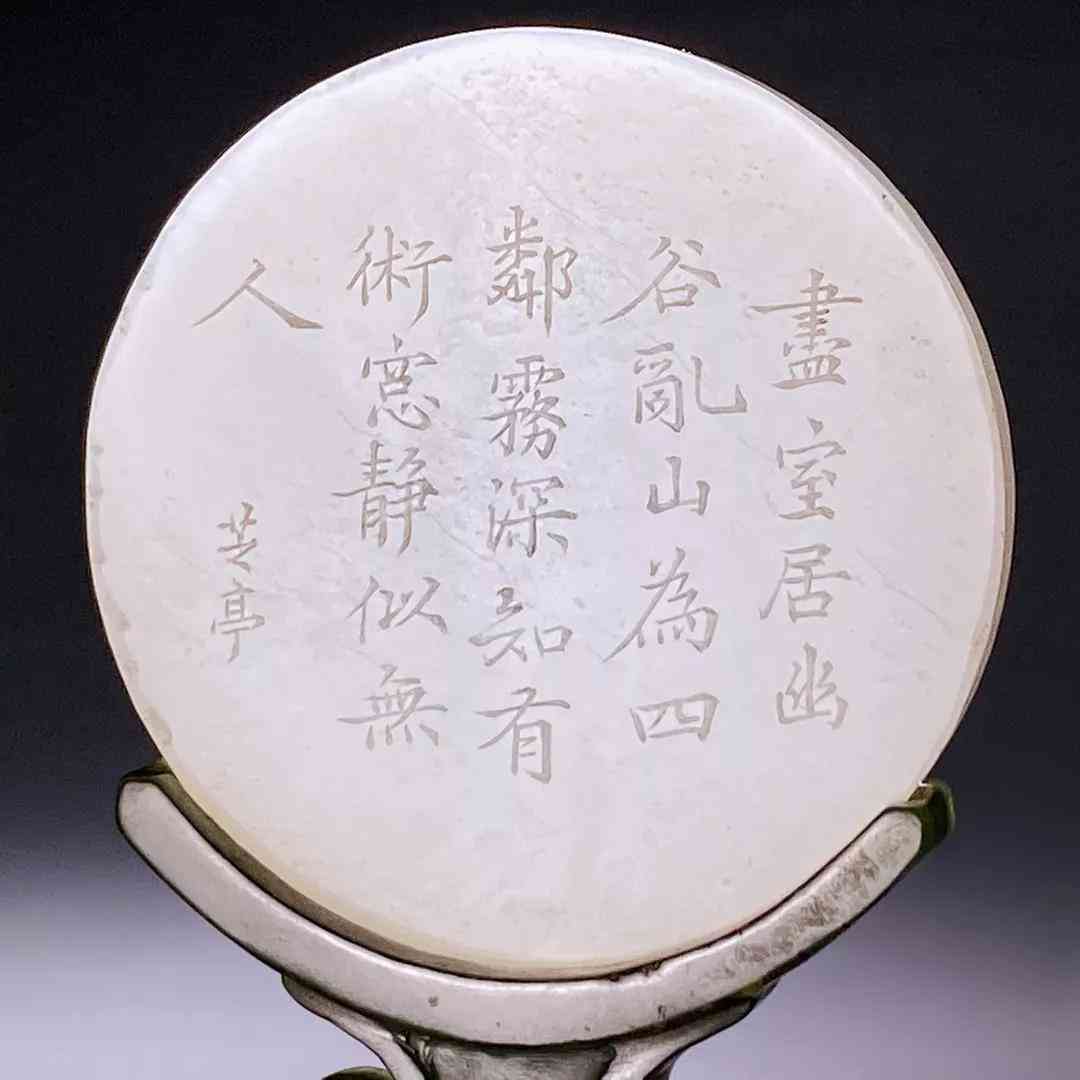 盡室居幽
谷亂山為四
鄰霧深知有
術窻靜似無
人
芝亭